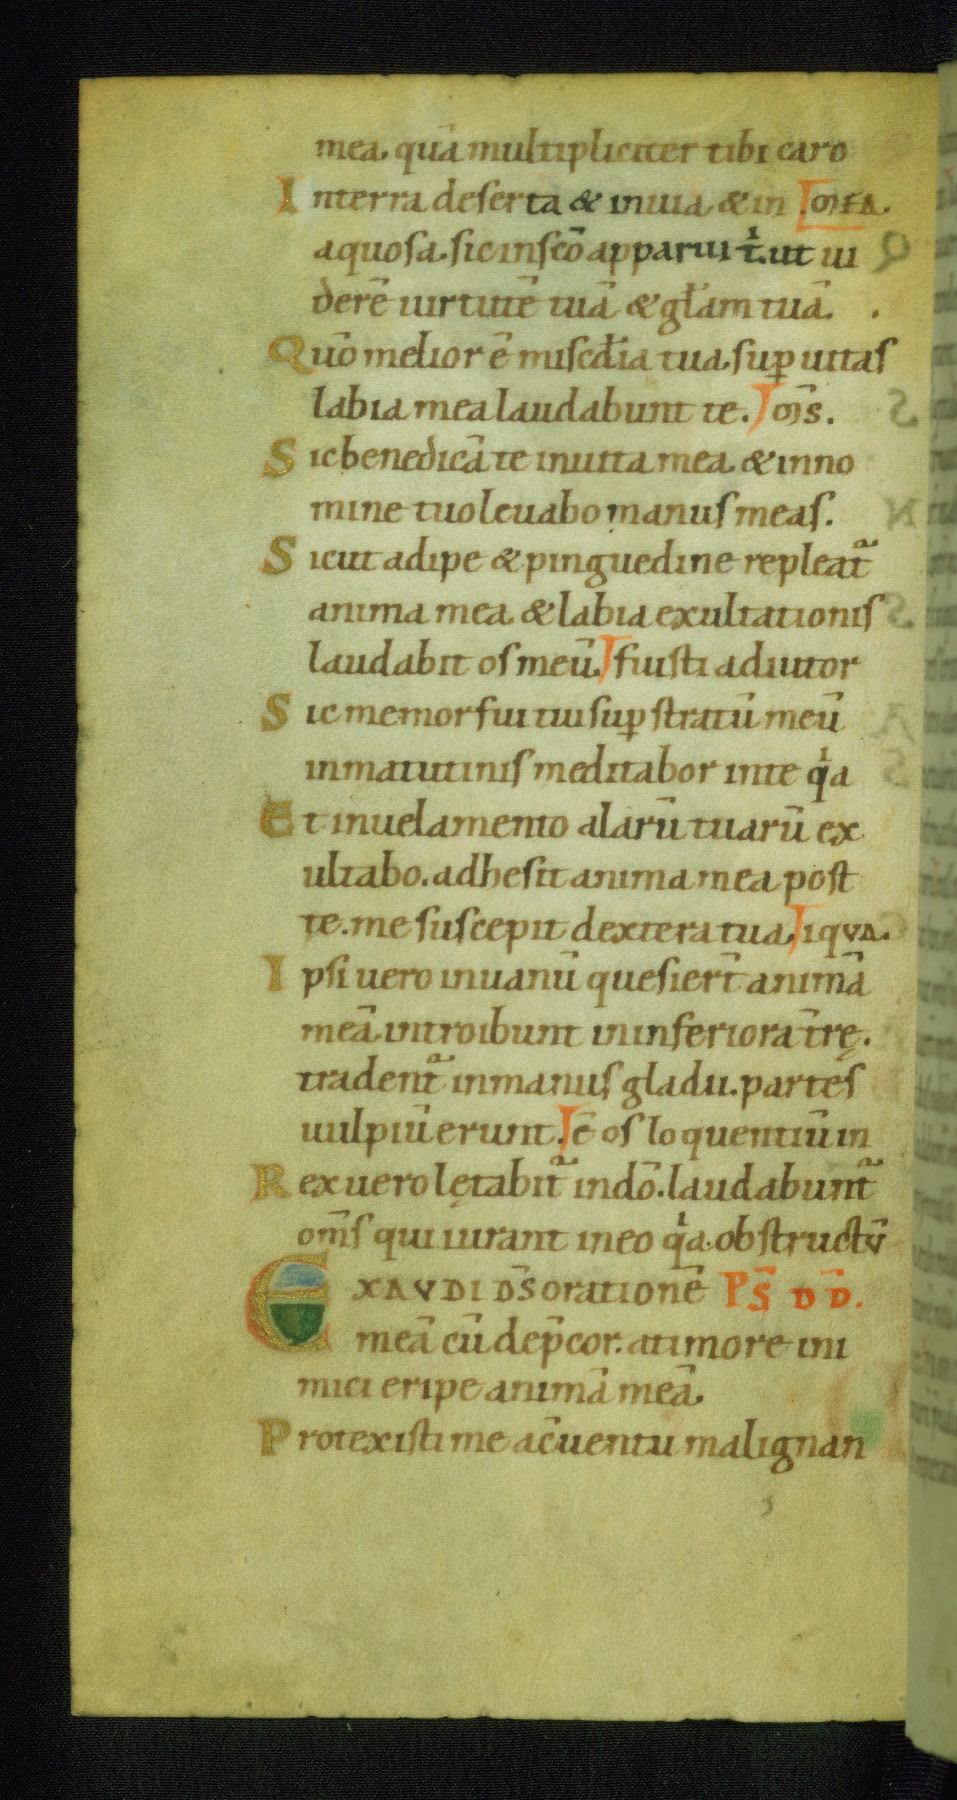 mea. quā multipliciter tibi caro
In terra deserta & inuia & in mea.
aquosa. sic in sc̄o apparui t̄. ut ui
derē uirtutē tuā & gl̄am tuā.
Qūo melior ē misc̄dia tua. sup uitas
labia mea laudabunt te. om̄s.
Sic benedicā te in uita mea. & in no
mine tuo leuabo manus meas.
Sicut adipe & pinguedine repleat̄
anima mea. & labia exultationis
laudabit os meū. fuisti adiutor
Sic memor fui tui sup stratū meū
in matutinis meditabor in te qͥa
Et in uelamento alarū tuarū ex
ultabo. adhesit anima mea post
te. me suscepit dextera tua. iqua.
Ipsi uero in uanū quesier̄t animā
meā. introibunt in inferiora t̄rę.
tradent̄ in manus gladii. partes
uulpiū erunt. ē os loquentiū in
Rex uero lętabit̄ in dō. laudabunt̄
om̄s qui iurant in eo qͥa obstructū
EXAVDI DS̄ orationē PS̄ DD̄.
meā cū dep̄cor. a timore ini
mici eripe animā meā.
Protexisti me a c̄uentu malignan